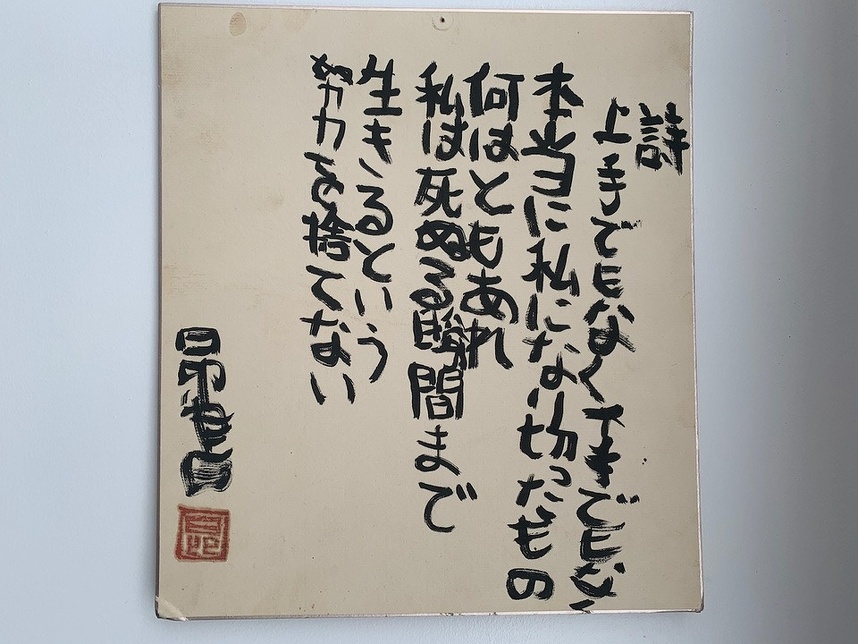 詩
上手でもなく下手でもない
本当に私になり切ったもの
何はともあれ
私は死ぬる瞬間まで
生きるという
努力を捨てない